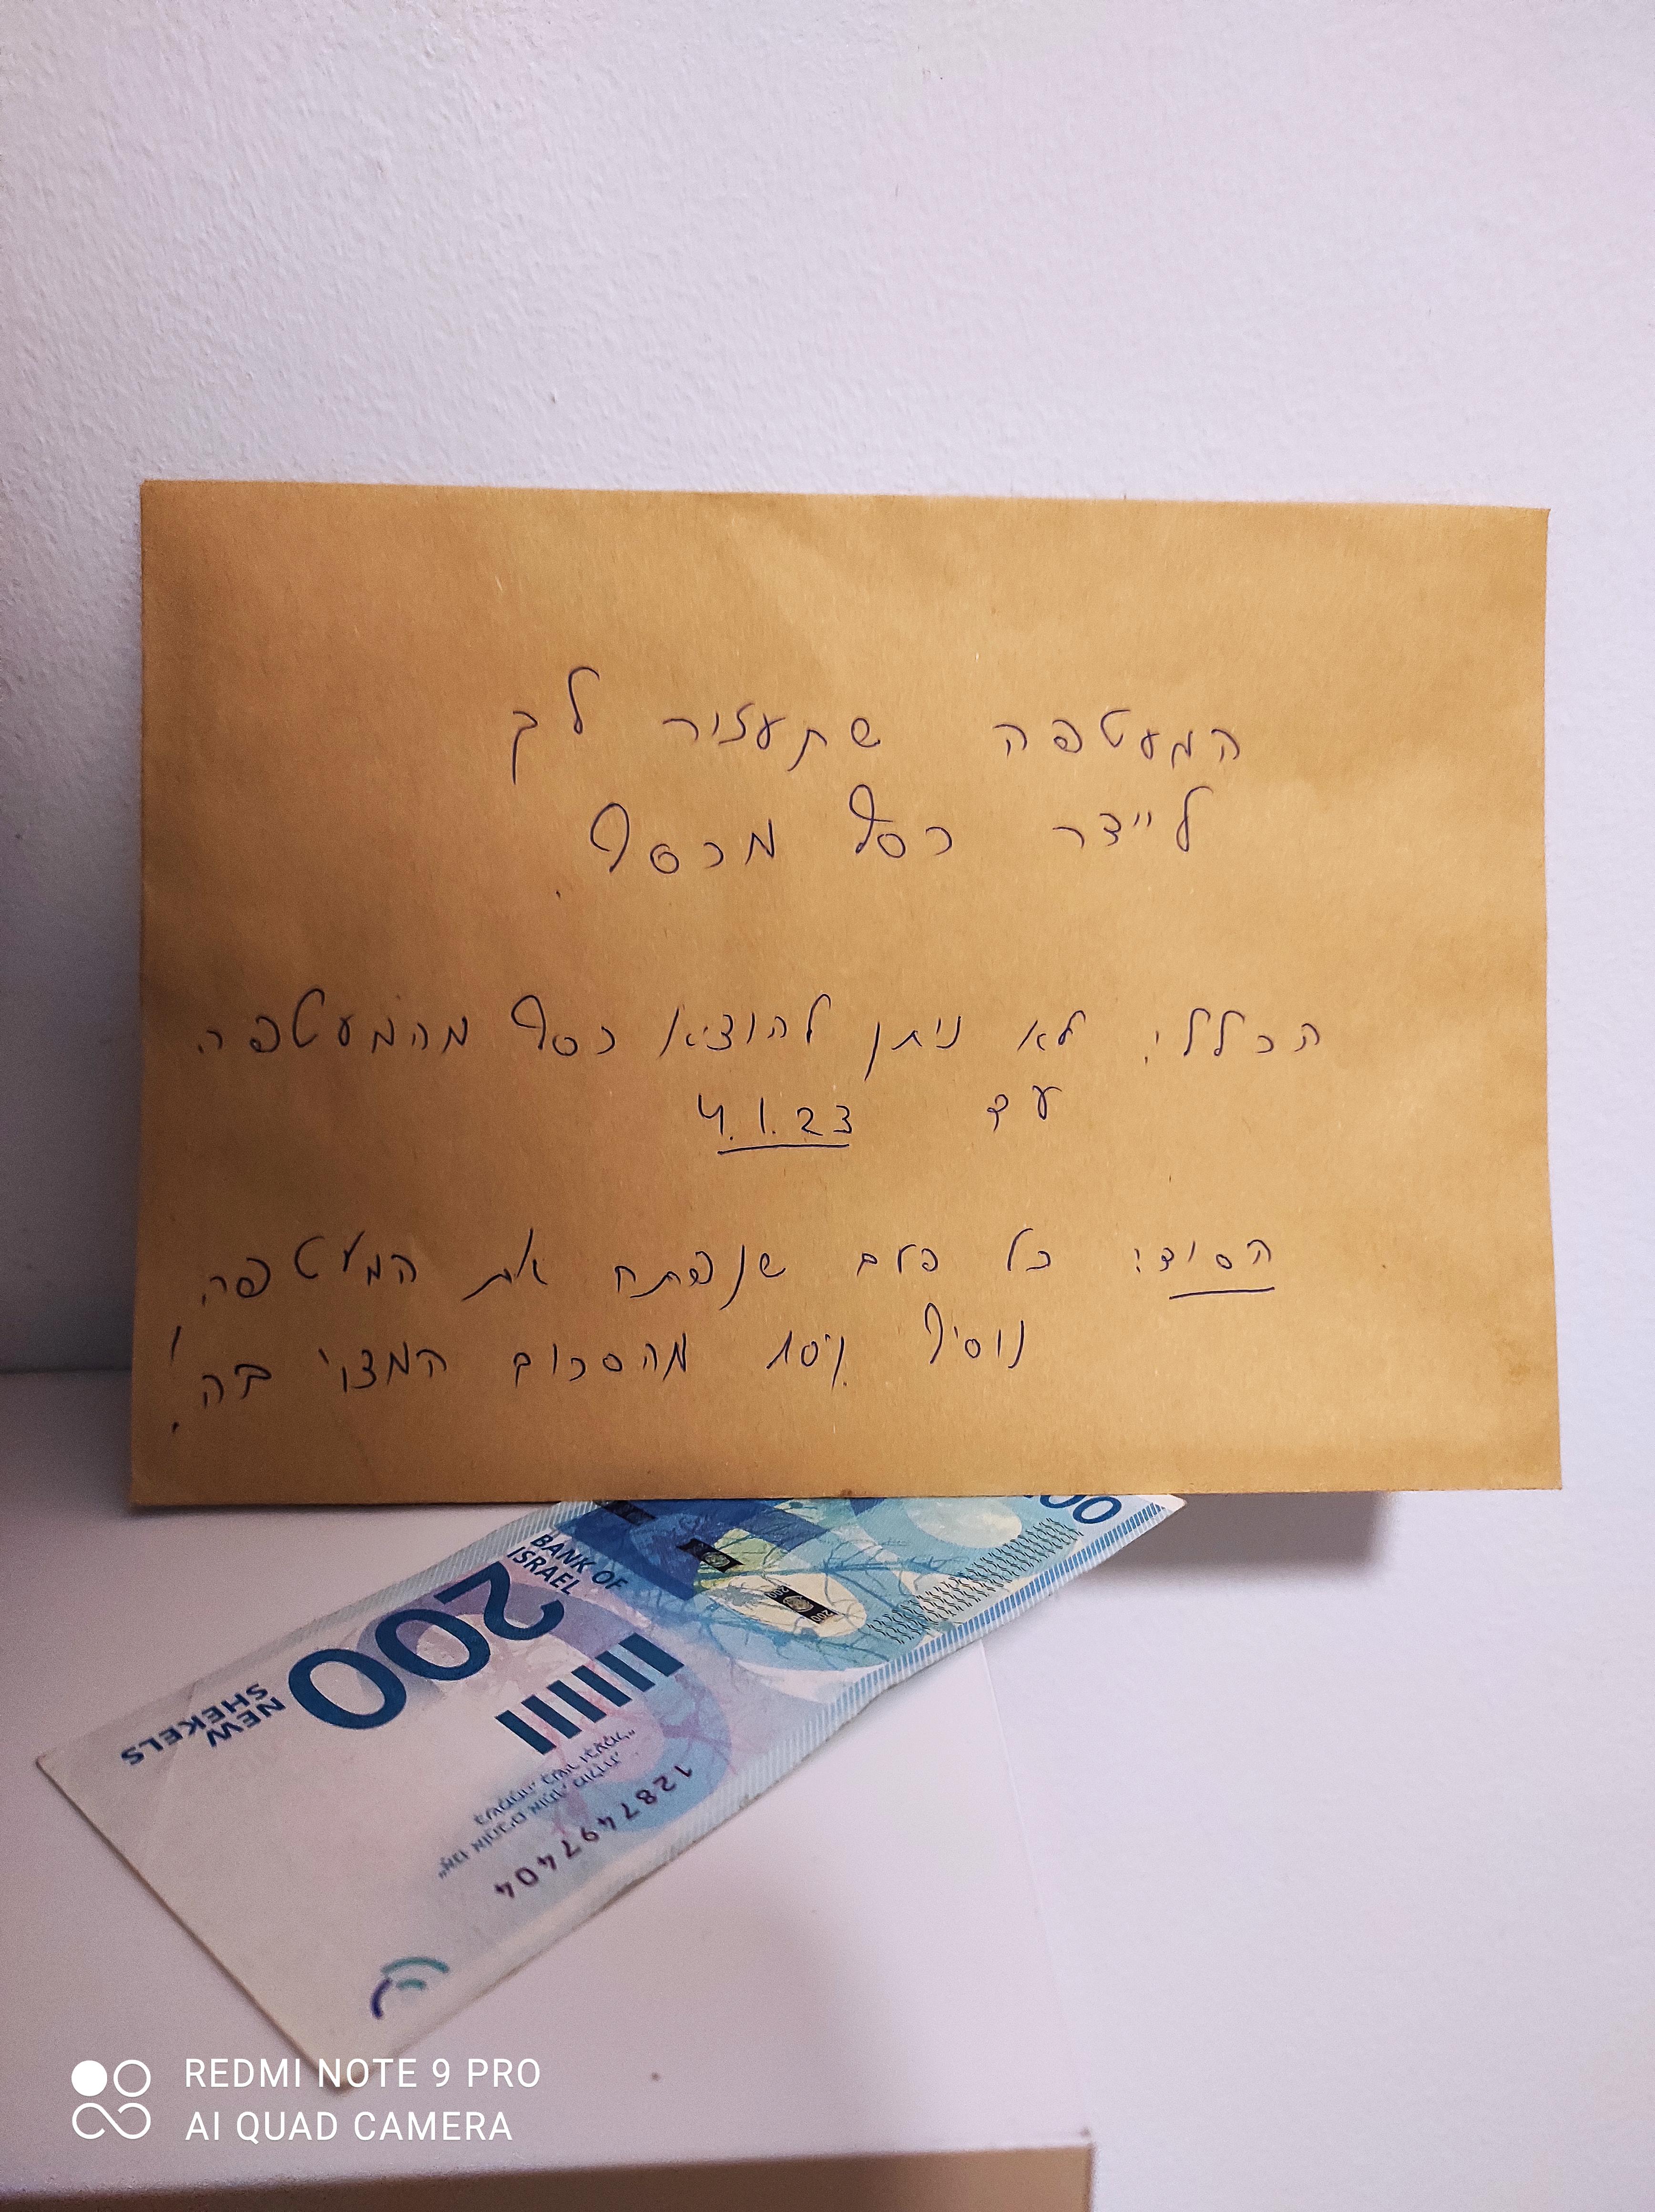 המעטפה שתעזור לך
לייצר כסף מכסף.
הכלל: לא ניתן להוציא כסף מהמעטפה
עד 4.1.23
הסוד: כל פעם שנפתח את המעטפה,
נוסיף מהסכום המצוי בה!
200
BANK OF
ISRAEL
200
NEW
SHEKELS
200
200
1287497404
REDMI NOTE 9 PRO
AI QUAD CAMERA